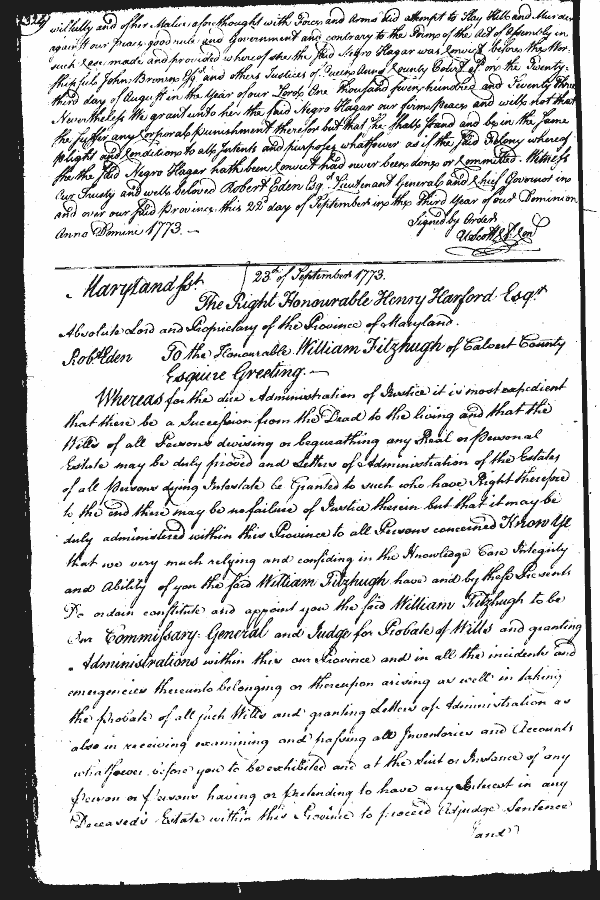 wilfully and of her Malice aforethought with Force and Arms did attempt to Slay Kill and Murder
against our peace good rule and Government and contrary to the Form of the Act of Assembly in
such case made and provided whereof she the said Negro Hagar was Convict before the Wor-
shipful John Brown Esqr and others Justices of Queen Anns County Court of on the Twenty
third day of August in the Year of our Lord One thousand seven hundred and Seventy three
Nevertheless We grant unto her the said Negro Hagar our firm peace and will not that
she suffer any Corporal punishment therefor but that she shall stand and be in the same
plight and Condition to all Intents and purposes whatsoever as if the said Felony whereof
she the said Negro Hagar hath been Convict had never been done or Committed. Witness
Our Trusty and well beloved Robert Eden Esqr Lieutenant General and Chief Governor in
and over our said Province this 22d day of September in the Third Year of our Dominion
Anno Domini 1773. —
Signed by Order
Maryland sst
23d of September 1773.
The Right Honourable Henry Harford Esqr
Absolute Lord and Proprietary of the Province of Maryland.
Robt Eden To the Honourable William Fitzhugh of Calvert County
Esquire Greeting. —
Whereas for the due Administration of Justice it is most expedient
that there be a Succession from the Dead to the living and that the
Wills of all Persons devising or bequeathing any Real or Personal
Estate may be duly proved and Letters of Administration of the Estates
of all Persons dying Intestate be Granted to such who have Right therefore
to the end there may be no failure of Justice therein but that it may be
duly administered within this Province to all Persons concerned Know Ye
that we very much relying and confiding in the Knowledge Care Integrity
and Ability of you the said William Fitzhugh have and by these Presents
Do ordain constitute and appoint you the said William Fitzhugh to be
Our Commissary General and Judge for Probate of Wills and granting
Administrations within this our Province and in all the incidents and
emergencies thereunto belonging or thereupon arising as well in taking
the probate of all such Wills and granting Letters of Administration as
also in receiving examining and passing all Inventories and Accounts
whatsoever before you to be exhibited and at the Suit or Instance of any
person or persons having or pretending to have any Interest in any
Deceased's Estate within this Province to proceed Adjudge Sentence
and